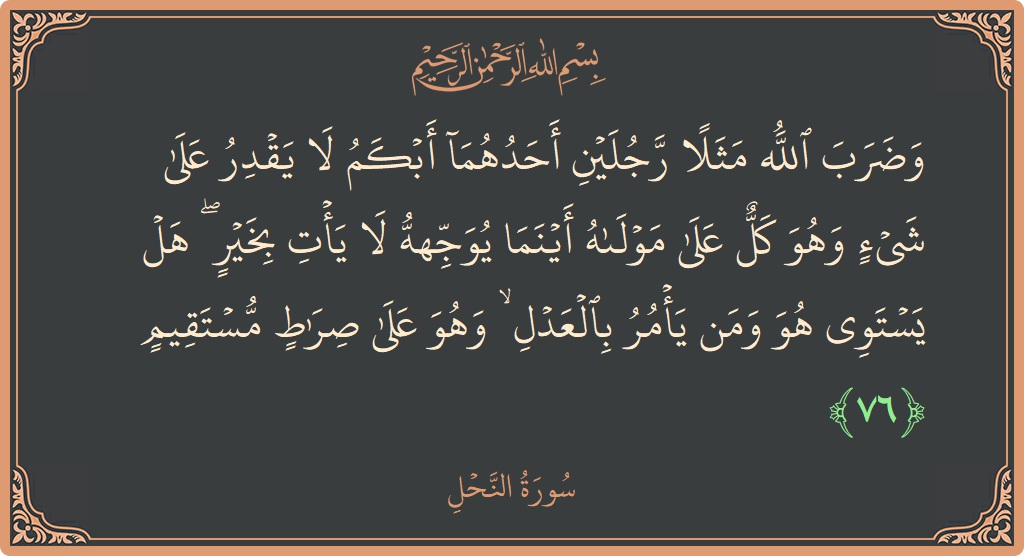 بِسْمِ اللهِ الرَّحْمٰنِ الرَّحِيْمِ
وَضَرَبَ ٱللَّهُ مَثَلًا رَّجُلَيۡنِ أَحَدُهُمَآ أَبۡكَمُ لَا يَقۡدِرُ عَلَىٰ
شَىۡءٍ وَهُوَ كَلٌّ عَلَىٰ مَوۡلَىٰهُ أَيۡنَمَا يُوَجِّههُّ لَا يَأۡتِ بِخَيۡرٍ ۖ هَلۡ
يَسۡتَوِى هُوَ وَمَن يَأۡمُرُ بِٱلۡعَدۡلِ ۙ وَهُوَ عَلَىٰ صِرَٰطٍ مُّسۡتَقِيمٍ
﴿٧٦﴾
سُورَةُ النَّحۡلِ